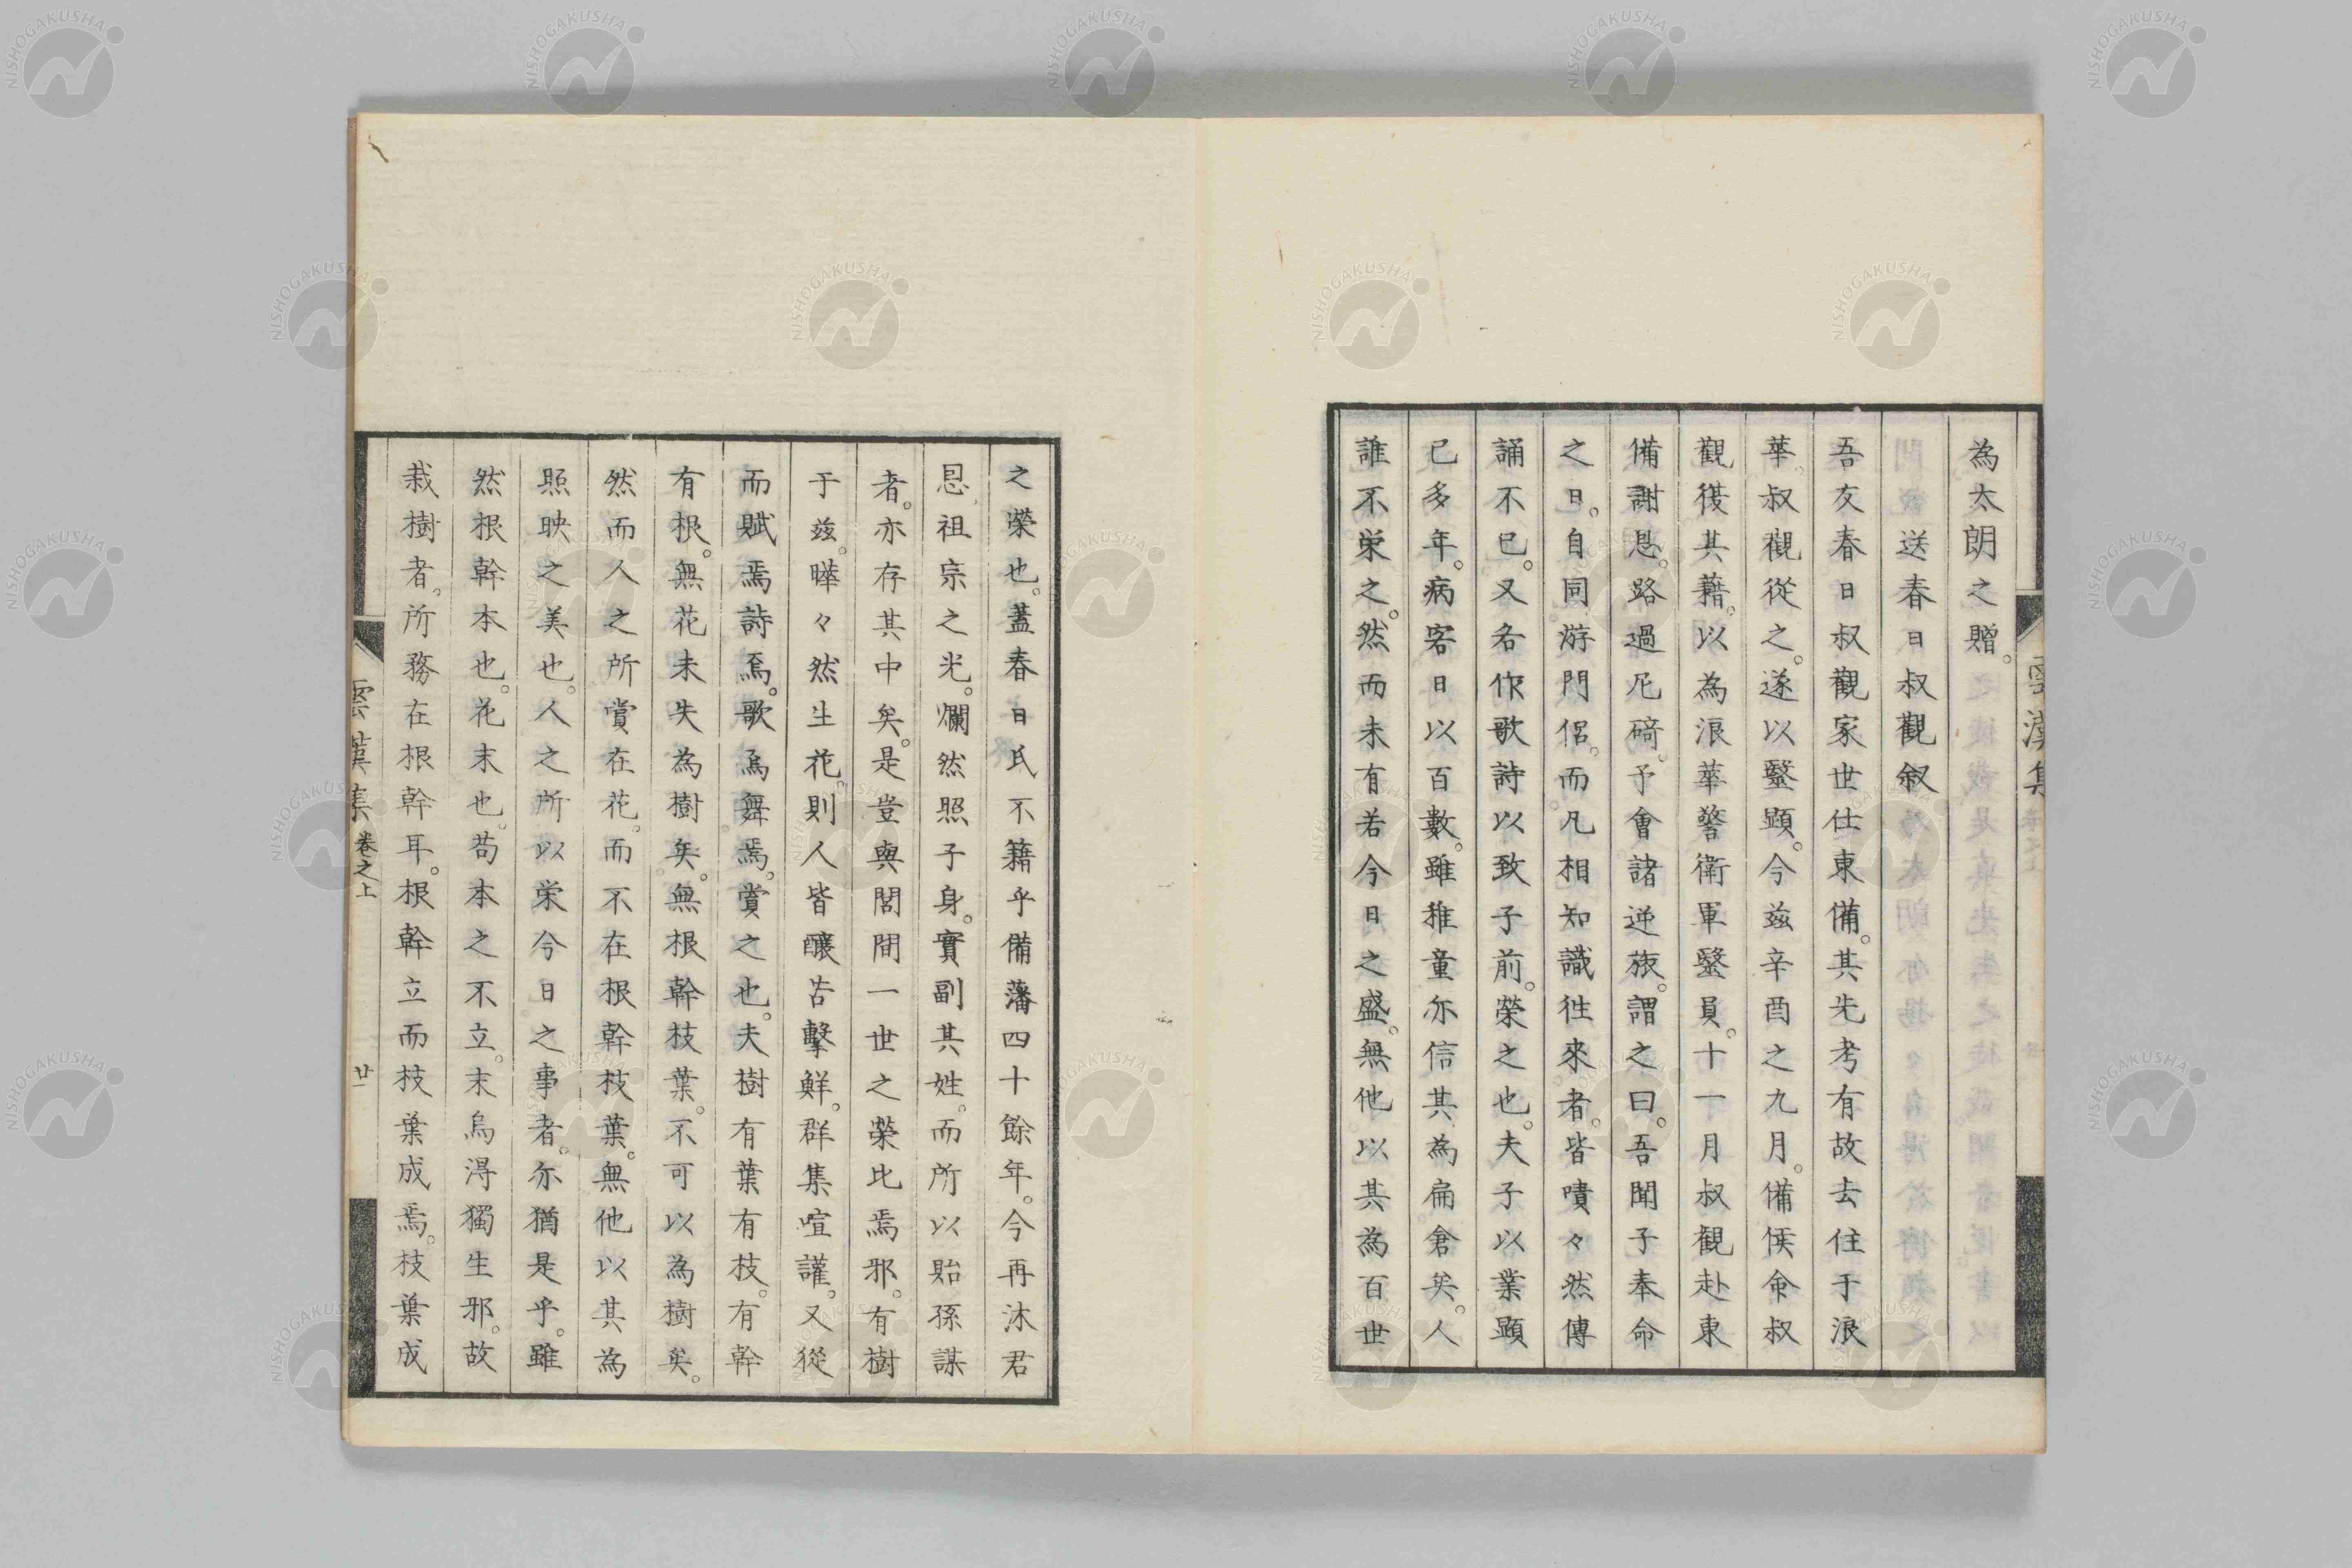 為太朗之贈。
送春日叔觀叙
吾友春日叔觀家世仕東備。其先考有故去住于浪
華。叔觀從之。遂以醫顕。今茲辛酉之九月。備侯命叔
觀復其藉。以為浪華警衛軍醫員。十一月叔觀赴東
備謝恩。路過尼碕。予會諸逆旅。謂之曰。吾聞子奉命
之日。自同游門侶。而凡相知識徃來者。皆嘖々然傳
誦不已。又各作歌詩以致子前。榮之也。夫子以業顕
已多年。病客日以百數。雖稚童亦信其為扁倉矣。人
誰不栄之。然而未有若今日之盛。無他以其為百世
之榮也。蓋春日氏不籍乎備藩四十餘年。今再沐君
恩。祖宗之光。爛然照子身。實副其姓。而所以貽孫謀
者。亦存其中矣。是豈與閭間一世之榮比焉邪。有樹
于茲。曄々然生花。則人皆釀苦擊鮮。群集喧讙。又從
而賦焉詩焉。歌焉舞焉。賞之也。夫樹有葉有枝。有幹
有根。無花未失為樹矣。無根幹枝葉。不可以為樹矣。
然而人之所賞在花。而不在根幹枝葉。無他以其為
照映之美也。人之所以栄今日之事者。亦猶是乎。雖
然根幹本也。花末也。苟本之不立。末烏得獨生邪。故
栽樹者。所務在根幹耳。根幹立而枝葉成焉。枝葉成
雲漢集
卷之上
廿一
雲漢集